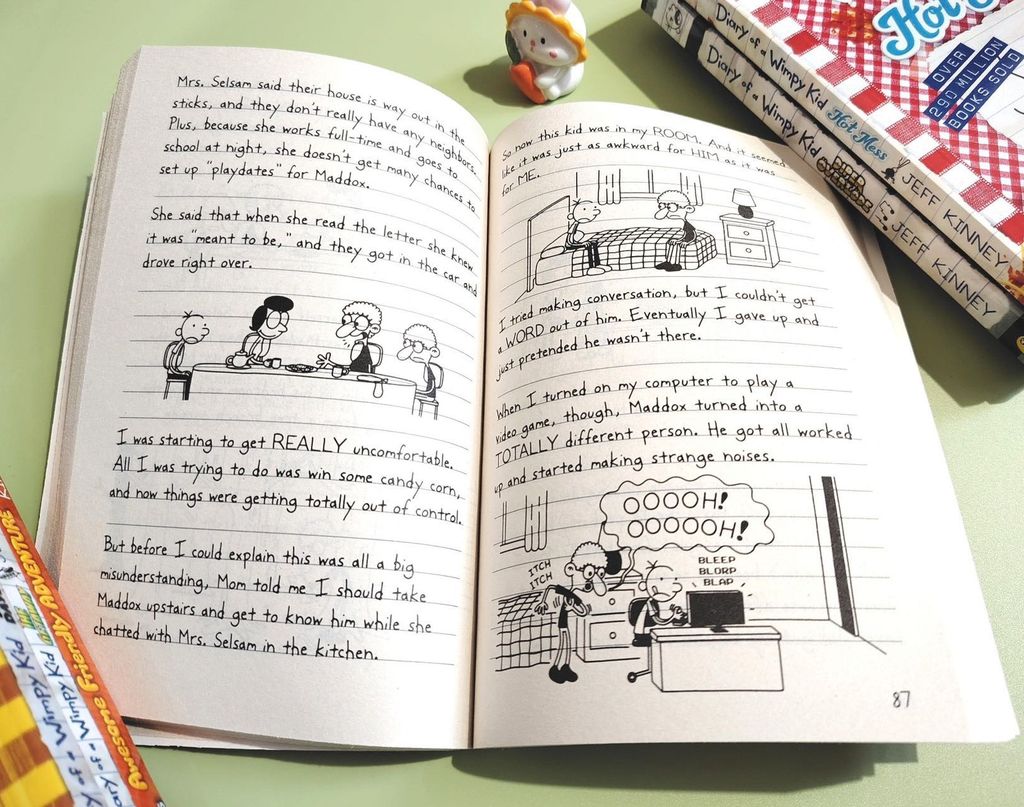 Mrs. Selsam said their house is way out in the
sticks, and they don't really have any neighbors.
Plus, because she works full-time and goes to
school at night, she doesn't get many chances to
set up "playdates" for Maddox.
She said that when she read the letter she knew
it was "meant to be," and they got in the car and
drove right over.
I was starting to get REALLY uncomfortable.
All I was trying to do was win some candy corn,
and now things were getting totally out of control.
But before I could explain this was all a big
misunderstanding, Mom told me I should take
Maddox upstairs and get to know him while she
chatted with Mrs. Selsam in the kitchen.
So now this kid was in my ROOM. And it seemed
like it was just as awkward for HIM as it was
for ME.
I tried making conversation, but I couldn't get
a WORD out of him. Eventually I gave up and
just pretended he wasn't there.
When I turned on my computer to play a
video game, though, Maddox turned into a
TOTALLY different person. He got all worked
up and started making strange noises.
OOOOH!
OOOOOH!
ITCH
ITCH
BLEEP
BLORP
BLAP
87
Hot
OVER
290 MILLION
BOOKS SOLD
Diary of a Wimpy Kid Hot Mess JEFF KINNEY
Diary of a Wimpy Kid JEFF KINNEY
Awesome Friendly ADVENTURE
of a Wimpy Kid
of a Wimpy Kid